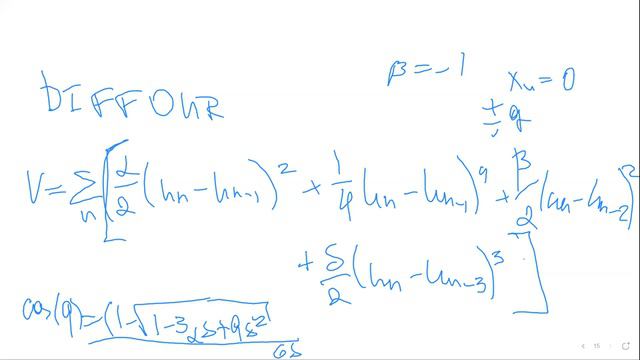 β = -1
x_n = 0
± q
DIFFOUR
V = Σ_n [ α/2 (u_n - u_{n-1})^2 + 1/4 (u_n - u_{n-1})^4 + β/2 (u_n - u_{n-2})^2
+ δ/2 (u_n - u_{n-3})^3 ]
cos(q) = (1 - √(1 - 3αδ + 9δ^2)) / 6δ
15